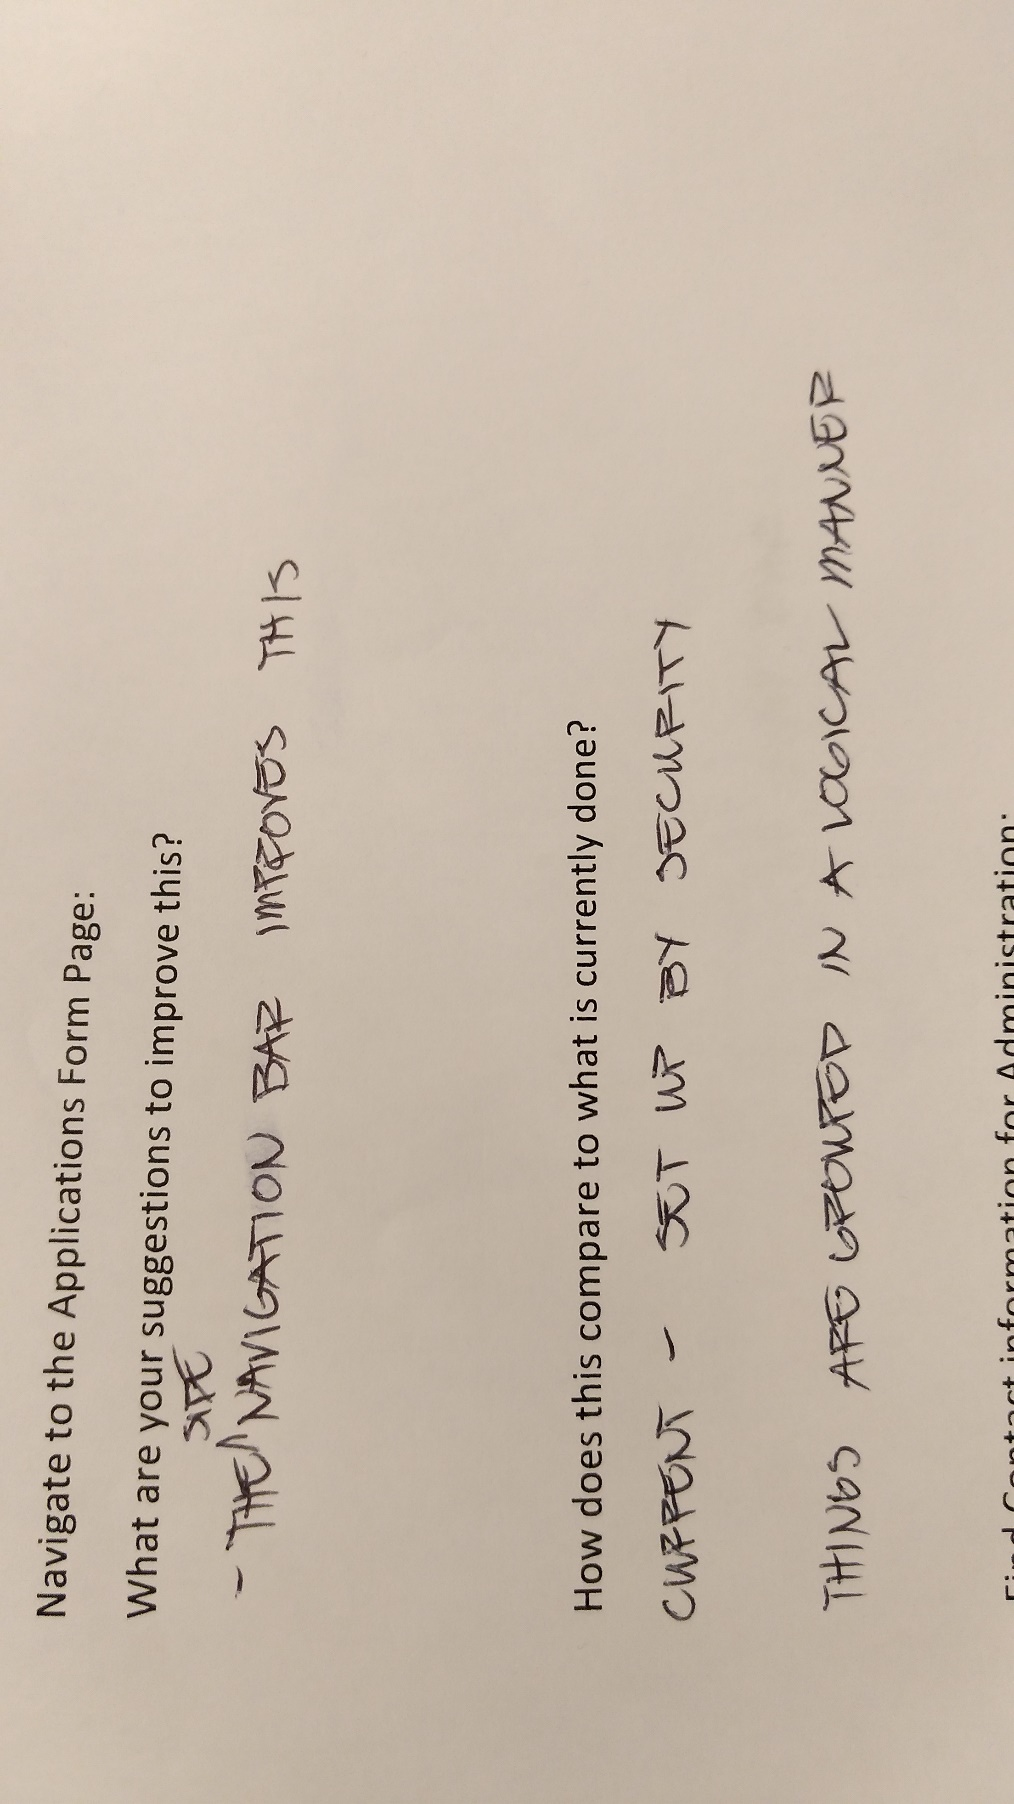 Navigate to the Applications Form Page:
What are your suggestions to improve this?
SITE
- THE NAVIGATION BAR IMPROVES THIS
How does this compare to what is currently done?
CURRENT - SET UP BY SECURITY
THINGS ARE GROUPED IN A LOGICAL MANNER
Find Contact information for Administration: